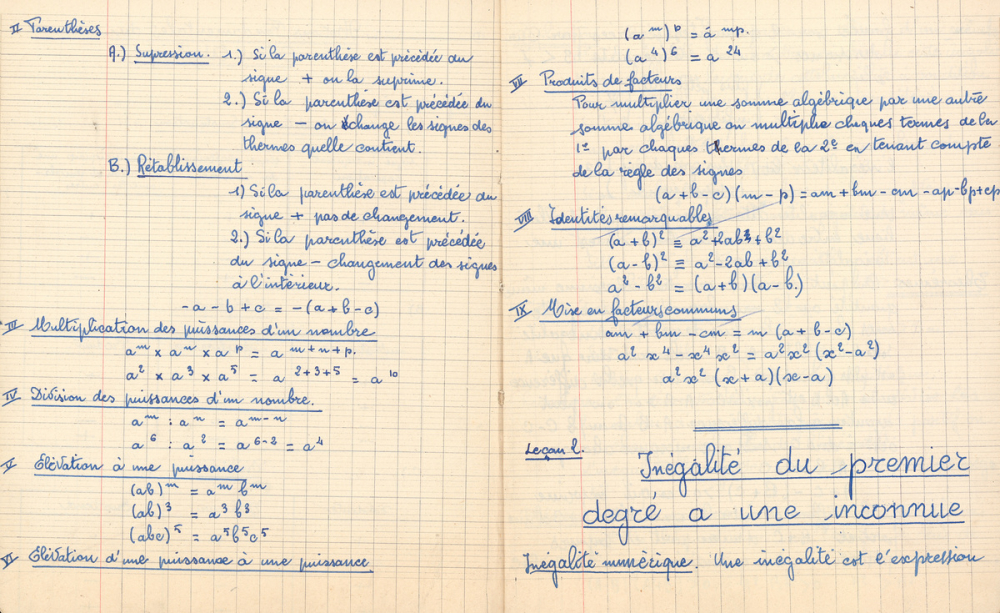 II Parenthèses
A.) Supression. 1.) Si la parenthèse est précédée du
signe + on la suprime.
2.) Si la parenthèse est précédée du
signe − on change les signes des
thermes quelle contient.
B.) Rétablissement
1) Si la parenthèse est précédée du
signe + pas de changement.
2.) Si la parenthèse est précédée
du signe − changement des signes
à l'intérieur.
-a - b + c = -(a+b-c)
III Multiplication des puissances d'un nombre
aᵐ x aⁿ x aᵖ = a ᵐ⁺ⁿ⁺ᵖ.
a² x a³ x a⁵ = a ²⁺³⁺⁵ = a¹⁰
IV Division des puissances d'un nombre.
aᵐ : aⁿ = aᵐ⁻ⁿ
a⁶ : a² = a⁶⁻² = a⁴
V Élévation à une puissance
(ab)ᵐ = aᵐ bᵐ
(ab)³ = a³ b³
(abc)⁵ = a⁵b⁵c⁵
VI Élévation d'une puissance à une puissance
(aᵐ)ᵖ = aᵐᵖ.
(a⁴)⁶ = a²⁴
VII Produits de facteurs
Pour multiplier une somme algébrique par une autre
somme algébrique on multiplie chaques termes de la
1ᵉ par chaques thermes de la 2ᵉ en tenant compte
de la règle des signes
(a+b-c)(m-p) = am+bm-cm-ap-bp+cp
VIII Identités remarquables
(a+b)² ≡ a²+2ab+b²
(a-b)² ≡ a²-2ab+b²
a²-b² = (a+b)(a-b.)
IX Mise en facteurs communs
am + bm - cm = m (a+b-c)
a² x⁴ - x⁴ x² = a²x² (x²-a²)
a²x² (x+a)(x-a)
Leçon 2.
Inégalité du premier
degré a une inconnue
Inégalité numérique. Une inégalité est l'expression